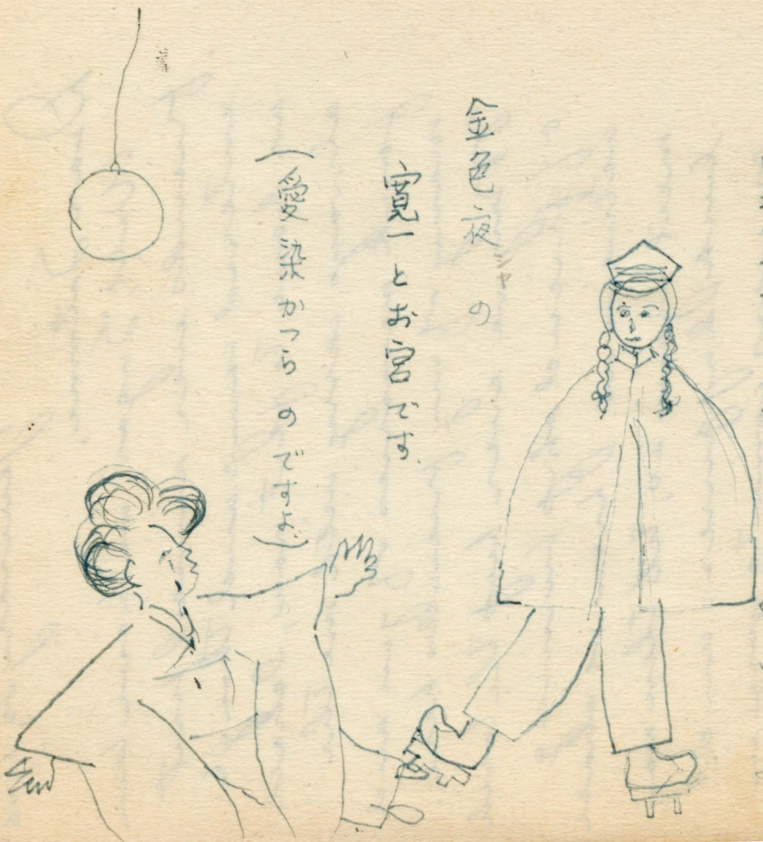 金色夜シャの
寛一とお宮です。
(愛染かつらのですよ。)